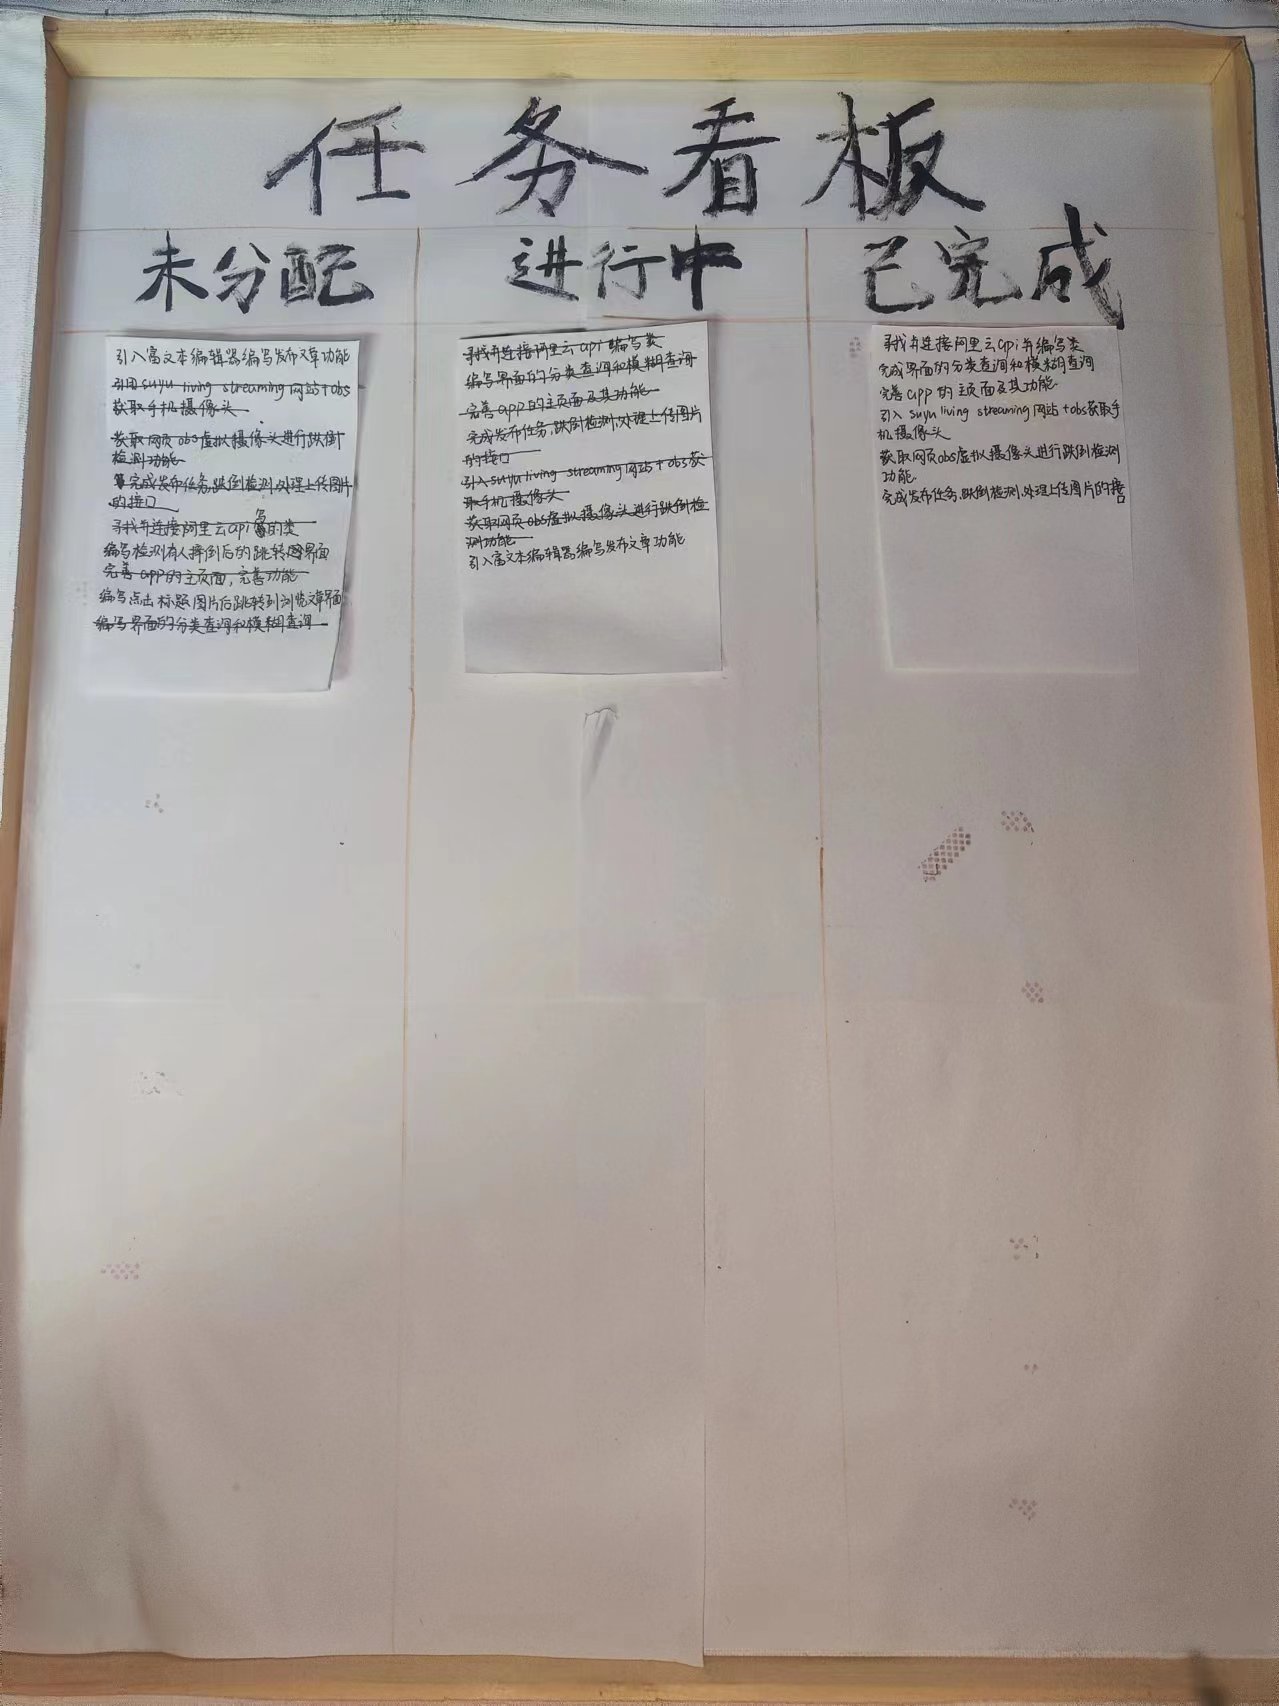 任务看板
未分配
进行中
已完成
引入富文本编辑器编写发布文章功能
引用suyu living streaming网站+obs
获取手机摄像头
获取网页obs虚拟摄像头进行跌倒
检测功能
完成发布任务,跌倒检测,处理上传图片
的接口
寻找并连接阿里云api写的类
编写检测有人摔倒后的跳转界面
完善app的主页面,完善功能
编写点击标题图片后跳转到浏览文章界面
编写界面的分类查询和模糊查询
寻找并连接阿里云api编写类
编写界面的分类查询和模糊查询
完善app的主页面及其功能
完成发布任务,跌倒检测,处理上传图片
的接口
引入suyu living streaming网站+obs获
取手机摄像头
获取网页obs虚拟摄像头进行跌倒检
测功能
引入富文本编辑器编写发布文章功能
寻找并连接阿里云api并编写类
完成界面的分类查询和模糊查询
完善app的主页面及其功能
引入suyu living streaming网站+obs获取手
机摄像头
获取网页obs虚拟摄像头进行跌倒检测
功能
完成发布任务,跌倒检测,处理上传图片的接口